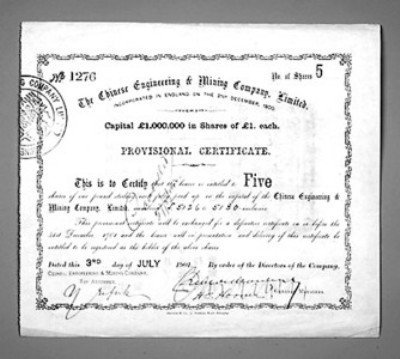 No 1276
No. of Shares 5
The Chinese Engineering & Mining Company, Limited.
INCORPORATED IN ENGLAND ON THE 21st DECEMBER, 1900.
Capital £1,000,000 in Shares of £1. each.
PROVISIONAL CERTIFICATE.
This is to Certify that the bearer is entitled to Five
shares of one pound sterling each fully paid up in the capital of the Chinese Engineering &
Mining Company, Limited, numbered inclusive
This provisional certificate will be exchanged for a definitive certificate on or before the
31st December 1901 and the bearer will on presentation and delivery of this certificate be
entitled to be registered as the holder of the above shares
Dated this 3RD day of JULY 1901. By order of the Directors of the Company.
CHINESE ENGINEERING & MINING COMPANY.